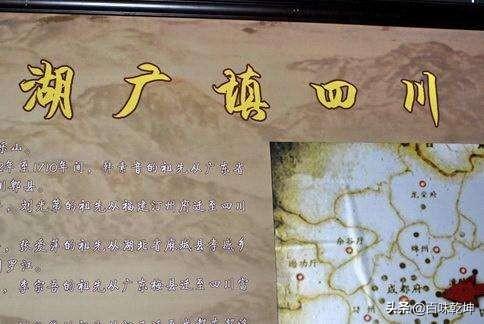 湖广填四川
乐山。
年至1710年间，韩素音的祖先从广东省
川郫县。
，刘光第的祖先从福建汀州府迁至四川
，张爱萍的祖先从湖北省麻城县孝感乡
罗江。
，李宗吾的祖先从广东梅县迁至四川富
杂谷厅
懋功厅
绵州
成都府
头条 @百味乾坤